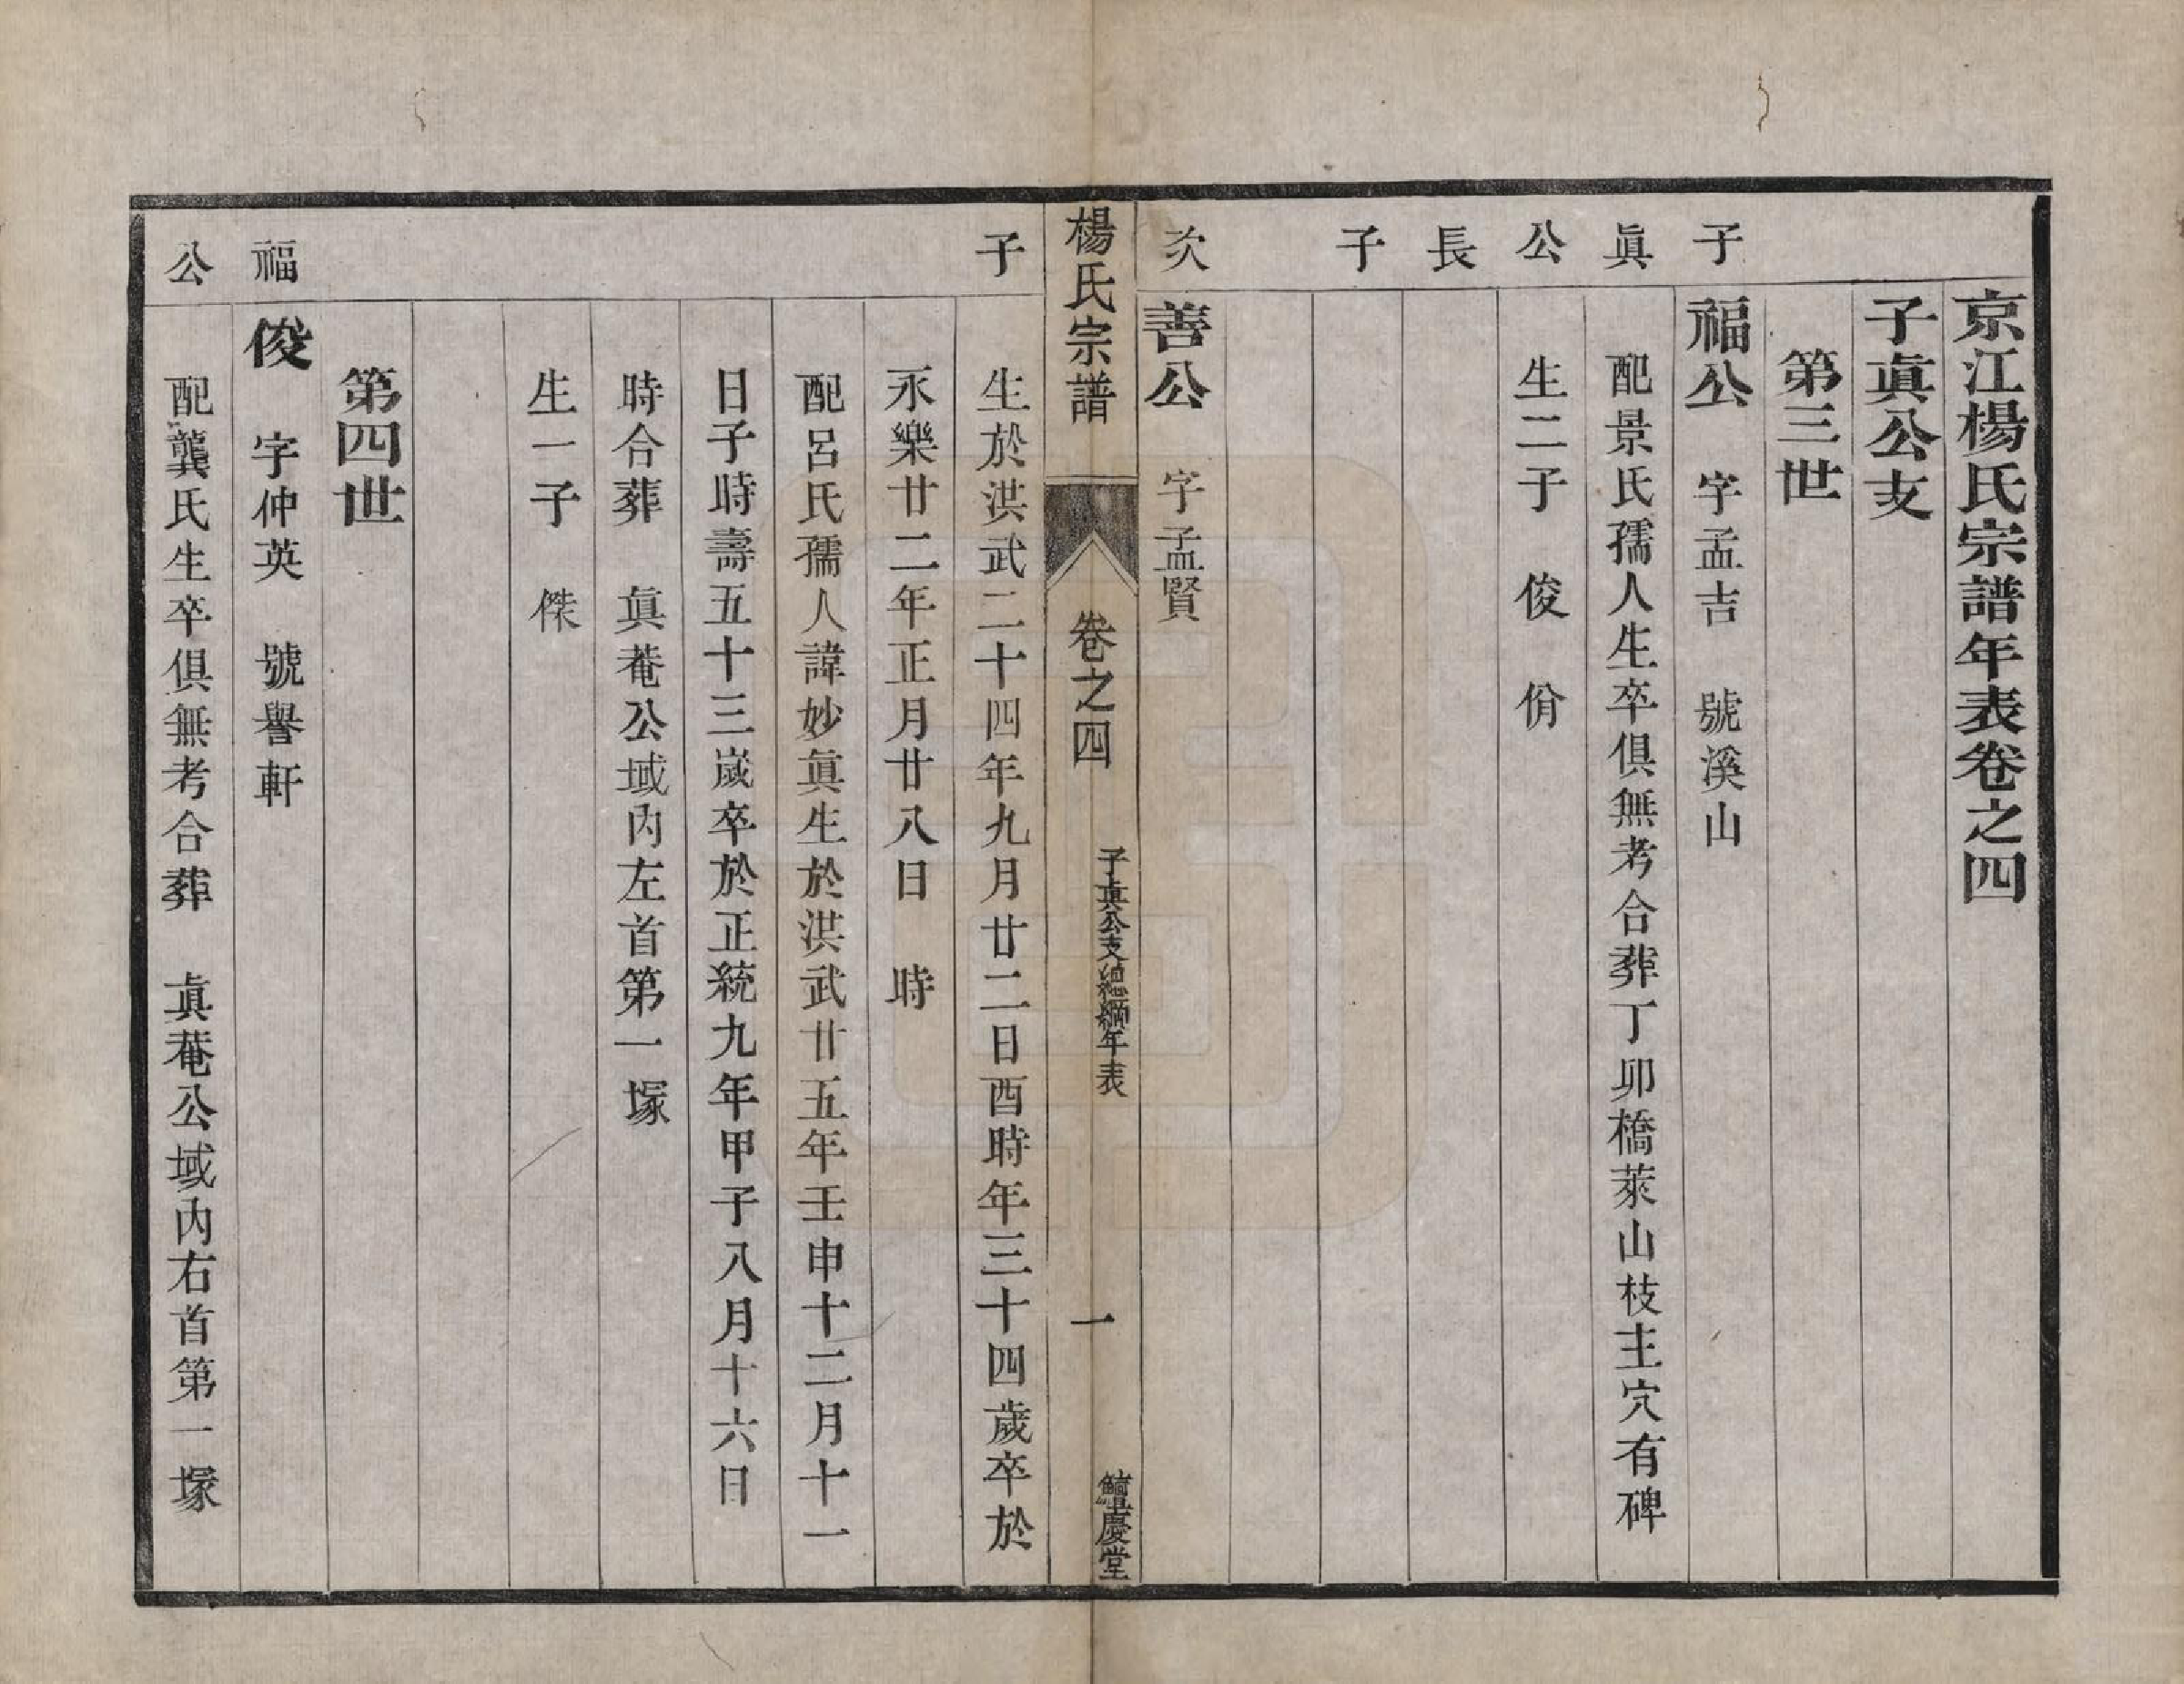 京江楊氏宗譜年表卷之四
子眞公支
第三世
子眞公長子
福公　字孟吉　號溪山
配景氏孺人生卒俱無考合葬丁卯橋萊山枝主穴有碑
生二子　俊　佾
次子
善公　字孟賢
楊氏宗譜　卷之四　子眞公支總綱年表　一　鱣慶堂
生於洪武二十四年九月廿二日酉時年三十四歲卒於
永樂廿二年正月廿八日　時
配呂氏孺人諱妙眞生於洪武廿五年壬申十二月十一
日子時壽五十三歲卒於正統九年甲子八月十六日
時合葬　眞菴公域內左首第一塚
生一子　傑
第四世
福公
俊　字仲英　號譽軒
配龔氏生卒俱無考合葬　眞菴公域內右首第一塚